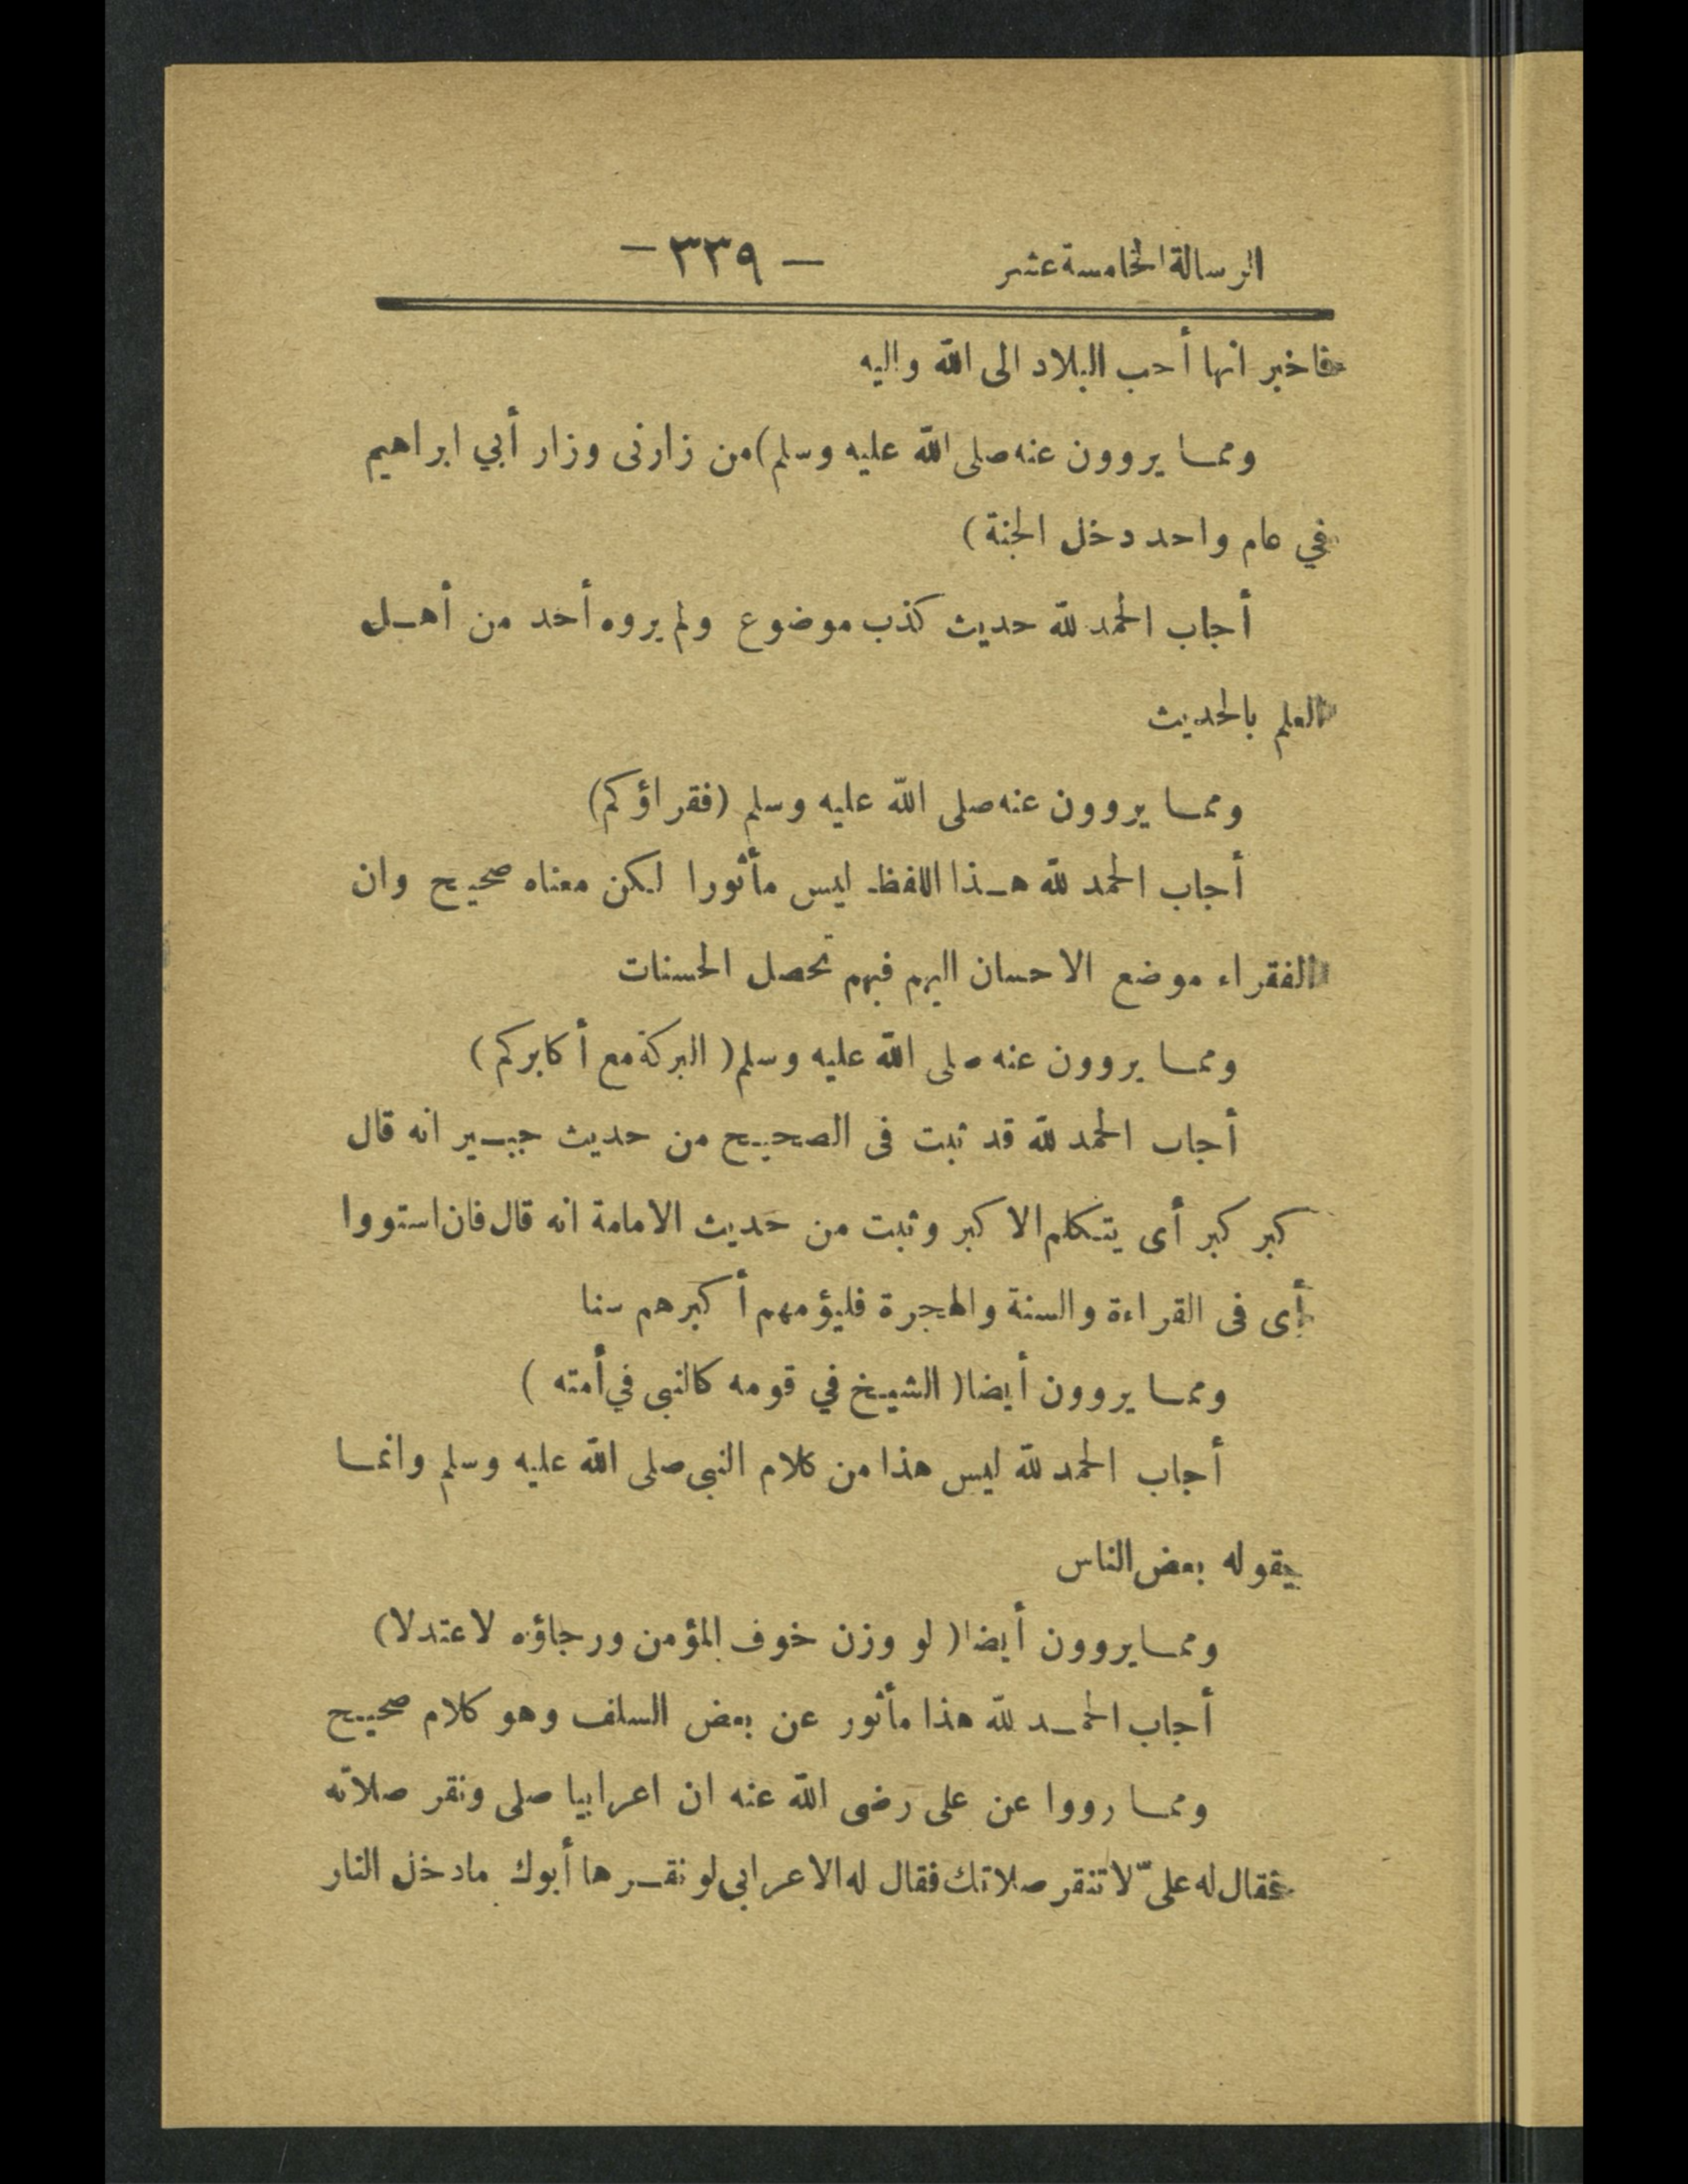 الرسالة الخامسة عشر — ٣٣٩ —
فاخبر انها أحب البلاد الى الله واليه
ومما يروون عنه صلى الله عليه وسلم (من زارنى وزار أبي ابراهيم
في عام واحد دخل الجنة)
أجاب الحمد لله حديث كذب موضوع ولم يروه أحد من أهل
العلم بالحديث
ومما يروون عنه صلى الله عليه وسلم (فقراؤكم)
أجاب الحمد لله هذا اللفظ ليس مأثورا لكن معناه صحيح وان
الفقراء موضع الاحسان اليهم فبهم تحصل الحسنات
ومما يروون عنه صلى الله عليه وسلم (البركة مع أكابركم)
أجاب الحمد لله قد ثبت فى الصحيح من حديث جبير انه قال
كبر كبر أى يتكلم الاكبر وثبت من حديث الامامة انه قال فان استووا
أى فى القراءة والسنة والهجرة فليؤمهم أكبرهم سنا
ومما يروون أيضا (الشيخ في قومه كالنبى في أمته)
أجاب الحمد لله ليس هذا من كلام النبى صلى الله عليه وسلم وانما
يقوله بعض الناس
ومما يروون أيضا (لو وزن خوف المؤمن ورجاؤه لاعتدلا)
أجاب الحمد لله هذا مأثور عن بعض السلف وهو كلام صحيح
ومما رووا عن على رضى الله عنه ان اعرابيا صلى ونقر صلاته
فقال له علىّ لا تنقر صلاتك فقال له الاعرابى لو نقرها أبوك مادخل النار